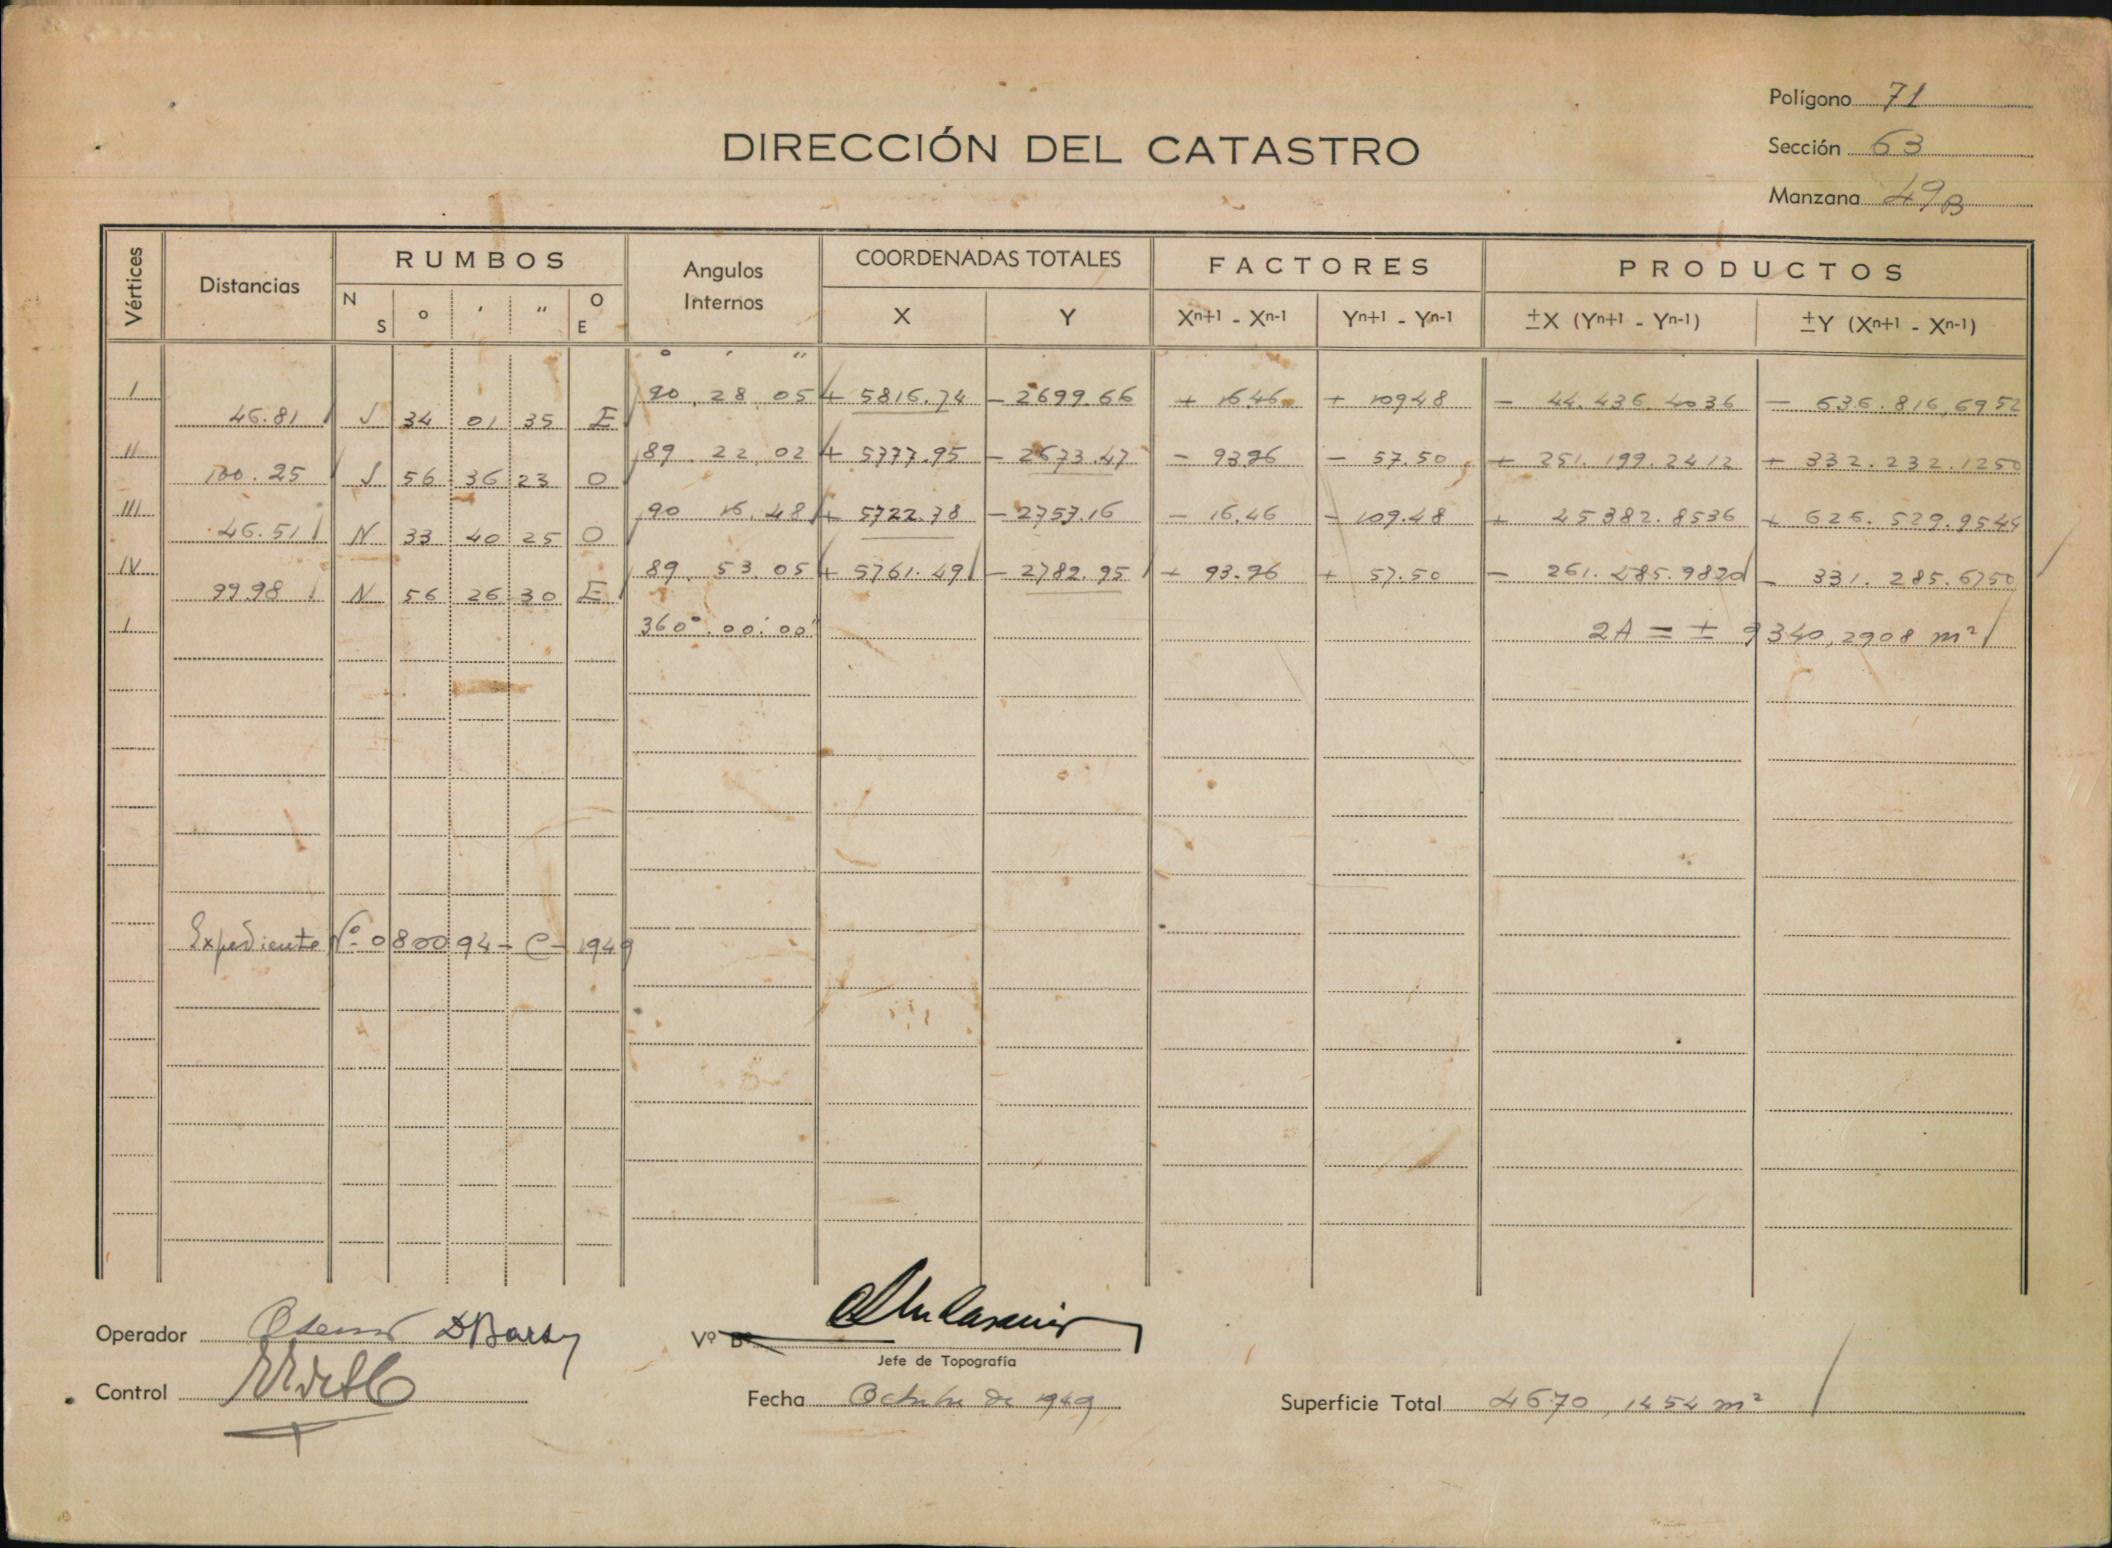 Polígono 71
DIRECCIÓN DEL CATASTRO
Sección 63
Manzana 49 B
Vértices Distancias RUMBOS Angulos Internos COORDENADAS TOTALES FACTORES PRODUCTOS
N S ° ' " O E X Y Xⁿ⁺¹ - Xⁿ⁻¹ Yⁿ⁺¹ - Yⁿ⁻¹ ±X (Yⁿ⁺¹ - Yⁿ⁻¹) ±Y (Xⁿ⁺¹ - Xⁿ⁻¹)
° ' "
I 90 28 05 + 5816.74 - 2699.66 + 16.46 + 109.48 - 44.436.4036 - 636.816,6952
46.81 S 34 01 35 E
II 89 22 02 + 5777.95 - 2673.47 - 93.96 - 57.50 + 251.199.2412 + 332.232.1250
100.25 S 56 36 23 O
III 90 16 48 + 5722.78 - 2757.16 - 16.46 - 109.48 + 45382.8536 + 626.529.9544
46.51 N 33 40 25 O
IV 89 53 05 + 5761.49 - 2782.95 + 93.96 + 57.50 - 261.485.9820 - 331.285.6750
99.98 N 56 26 30 E
I 360° 00' 00" 2A = ± 9340,2908 m²
Expediente Nº 080094 - C - 1949
Operador
Vº Bº
Jefe de Topografía
Control
Fecha Octubre de 1949
Superficie Total 4670,1454 m²